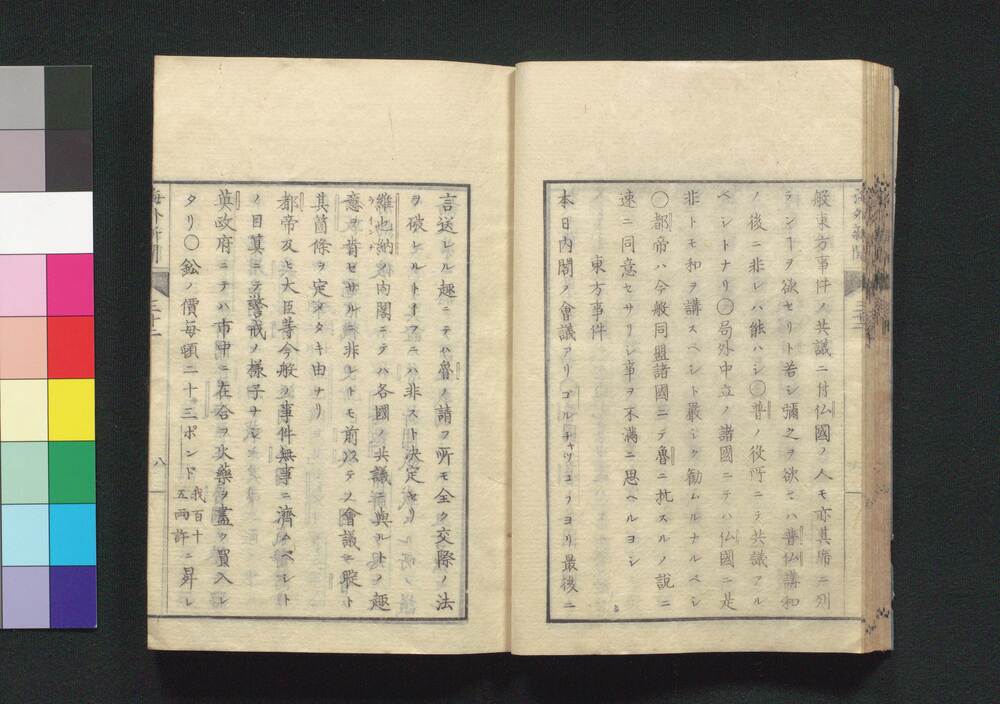 般東方事件ノ共議ニ付仏國ノ人モ亦其席ニ列
ランヿヲ欲セリト若シ彌之ヲ欲セハ普仏講和
ノ後ニ非レハ能ハシ〇普ノ役所ニテ共議アル
ベシトナリ〇局外中立ノ諸國ニテハ仏國ニ是
非トモ和ヲ講スベシト嚴シク勧ムルナルベシ
〇都帝ハ今般同盟諸國ニテ魯ニ抗スルノ説ニ
速ニ同意セサリシ事ヲ不満ニ思ヘルヨシ
東方事件
本日内閣ノ會議アリゴルチャツコフヨリ最後ニ
言送レル趣ニテハ魯ノ請フ所モ全ク交際ノ法
ヲ破レルトイフニハ非スト決定セリ
維也納ノ内閣ニテハ各國ノ共議ニ與ルトノ趣
意ヲ肯セサルニ非レトモ前以テノ會議ニ聡ト
其箇條ヲ定メタキ由ナリ
都帝及ヒ大臣等今般ノ事件無事ニ濟ムベシト
ノ目算ニテ警戒ノ様子ナシ
英政府ニテハ市中ニ在合フ火藥ヲ盡ク買入レ
タリ〇鉛ノ價毎頓ニ十三ポンド我百十五両許ニ昇レ
海外新聞
三十二
八